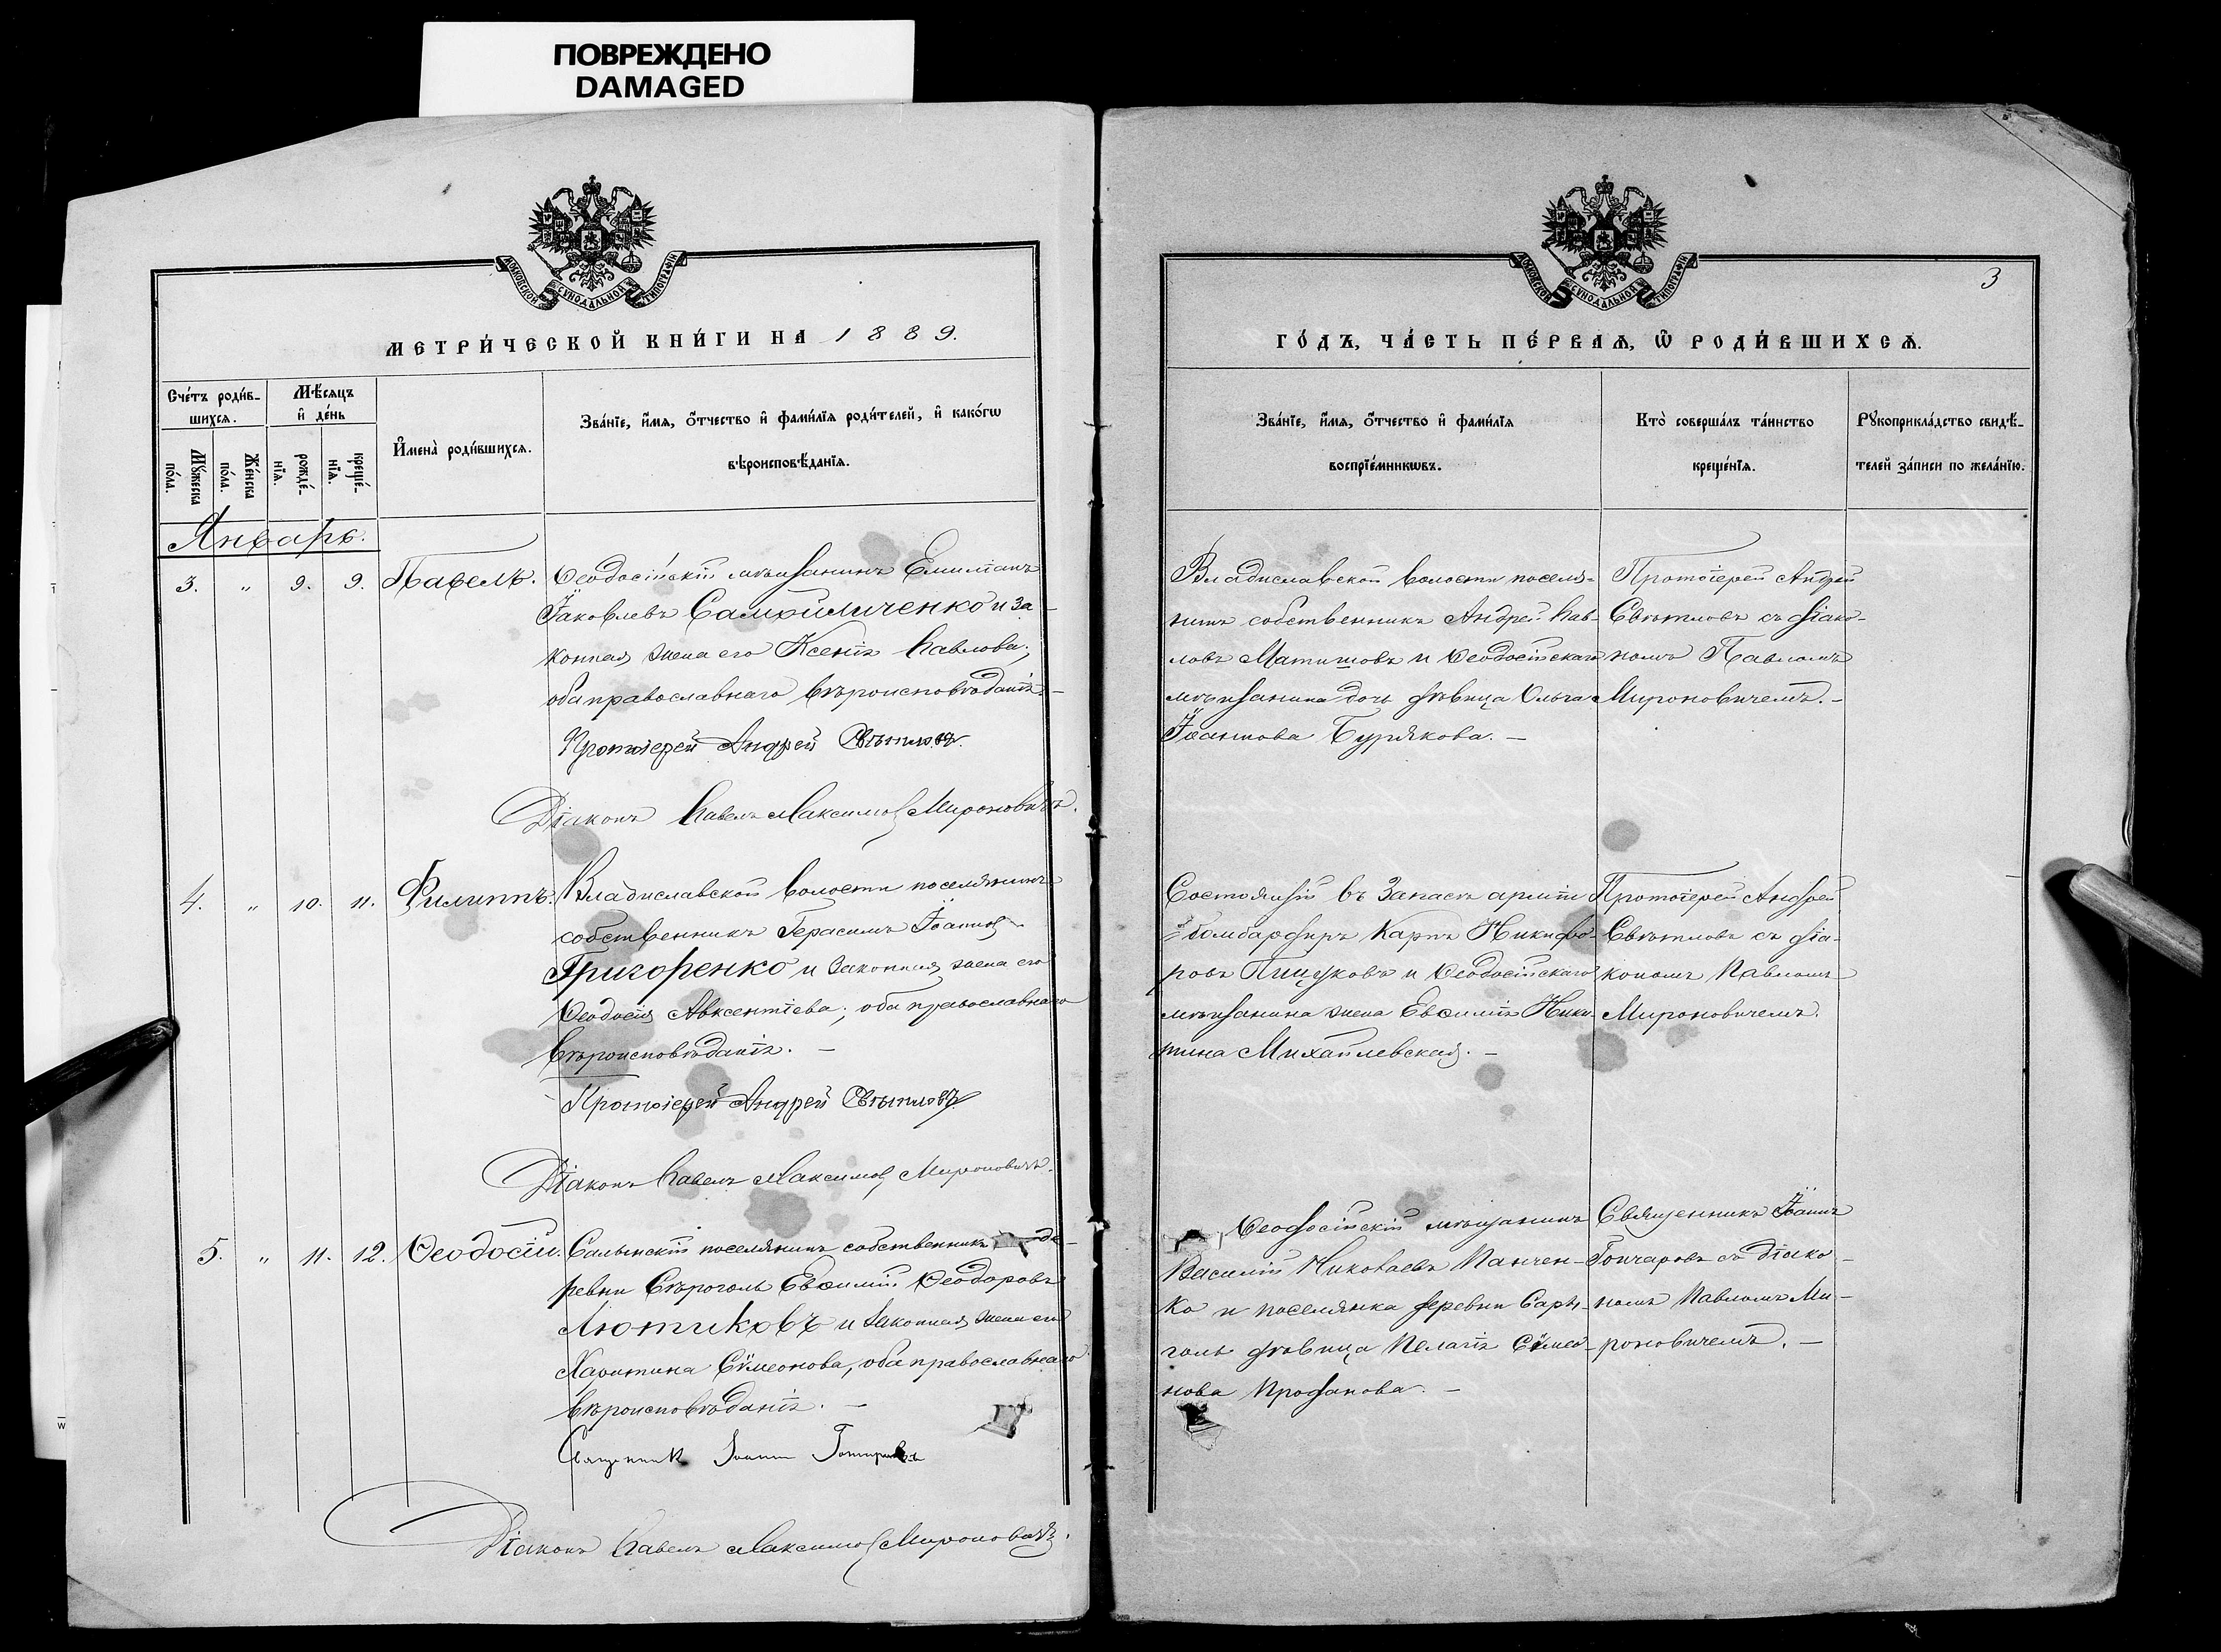 ПОВРЕЖДЕНО
DAMAGED
МОСКОВСКОЙ СѴНОДАЛЬНОЙ ТИПОГРАФІИ
МЕТРИ́ЧЕСКОЙ КНИ́ГИ НА 1889.
Сче́тъ роди́в-
шихсѧ.
Мѣ́сѧцъ
и҆ де́нь
Мꙋ́жеска
по́ла.
Же́нска
по́ла.
рожде́-
нїѧ.
креще́-
нїѧ.
И҆мена̀ роди́вшихсѧ.
Зва́нїе, и҆́мѧ, о҆́тчество и҆ фами́лїѧ роди́телей, и҆ како́гѡ
вѣроисповѣ́данїѧ.
Январь.
3. " 9. 9. Павелъ.
Ѳеодосійскій мѣщанинъ Емиліанъ
Іаковлевъ Самойличенко и за-
конная жена его Ксенія Павлова;
оба православнаго вѣроисповѣданія. -
Протоіерей Андрей Свѣтловъ.
Діаконъ Павелъ Максимов Мироновичъ.
4. " 10. 11. Филиппъ.
Владиславской волости поселянинъ
собственникъ Герасимъ Іоаннов
Григоренко и законная жена его
Ѳеодосія Авксентіева; оба православнаго
вѣроисповѣданія. -
Протоіерей Андрей Свѣтловъ
Діаконъ Павелъ Максимов Мироновичъ.
5. " 11. 12. Ѳеодосій.
Салынскій поселянинъ собственникъ де-
ревни Сѣроголь Евѳимій Ѳеодоровъ
Лютиковъ и законная жена его
Харитина Сѵмеонова, оба православнаго
вѣроисповѣданія. -
Священник Іоанн Гончаровъ
Діаконъ Павелъ Максимов Мироновичъ.
МОСКОВСКОЙ СѴНОДАЛЬНОЙ ТИПОГРАФІИ
3
ГО́ДЪ, ЧА́СТЬ ПЕ́РВАѦ, Ѡ҆ РОДИ́ВШИХСѦ.
Зва́нїе, и҆́мѧ, о҆́тчество и҆ фами́лїѧ
воспрїе́мникѡвъ.
Кто̀ соверша́лъ та́инство
креще́нїѧ.
Рꙋкоприкла́дство свидѣ́-
телей за́писи по жела́нїю.
Владиславской волости поселя-
нинъ собственникъ Андрей Пав-
ловъ Матишовъ и Ѳеодосійскаго
мѣщанина дочь дѣвица Ольга
Іоаннова Бурякова. -
Протоіерей Андрей
Свѣтловъ съ діако-
номъ Павломъ
Мироновичемъ. -
Состоящій въ запасѣ арміи
бомбардиръ Карпъ Никифо-
ровъ Пицуковъ и Ѳеодосійскаго
мѣщанина жена Евѳимія Ники-
тина Михайлевская. -
Протоіерей Андрей
Свѣтловъ съ діа-
кономъ Павломъ
Мироновичемъ.
Ѳеодосійскій мѣщанинъ
Василій Николаевъ Панчен-
ко и поселянка деревни Сары-
голь дѣвица Пелагія Сѵмео-
нова Проданова. -
Священникъ Іоаннъ
Гончаровъ съ діако-
номъ Павломъ Ми-
роновичемъ. -